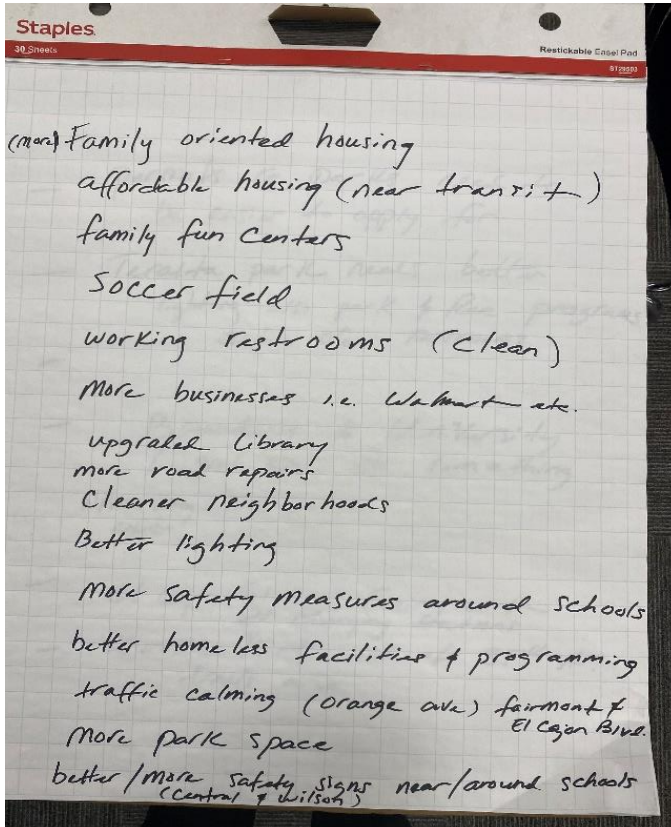 Staples
30 Sheets
Restickable Easel Pad
(more) Family oriented housing
affordable housing (near transit)
family fun centers
Soccer field
working restrooms (clean)
More businesses i.e. Walmart etc.
upgraded library
more road repairs
Cleaner neighborhoods
Better lighting
More safety measures around schools
better homeless facilities & programming
traffic calming (orange ave) fairmont &
El Cajon Blvd.
More park space
better/more safety signs near/around schools
(Central & Wilson)